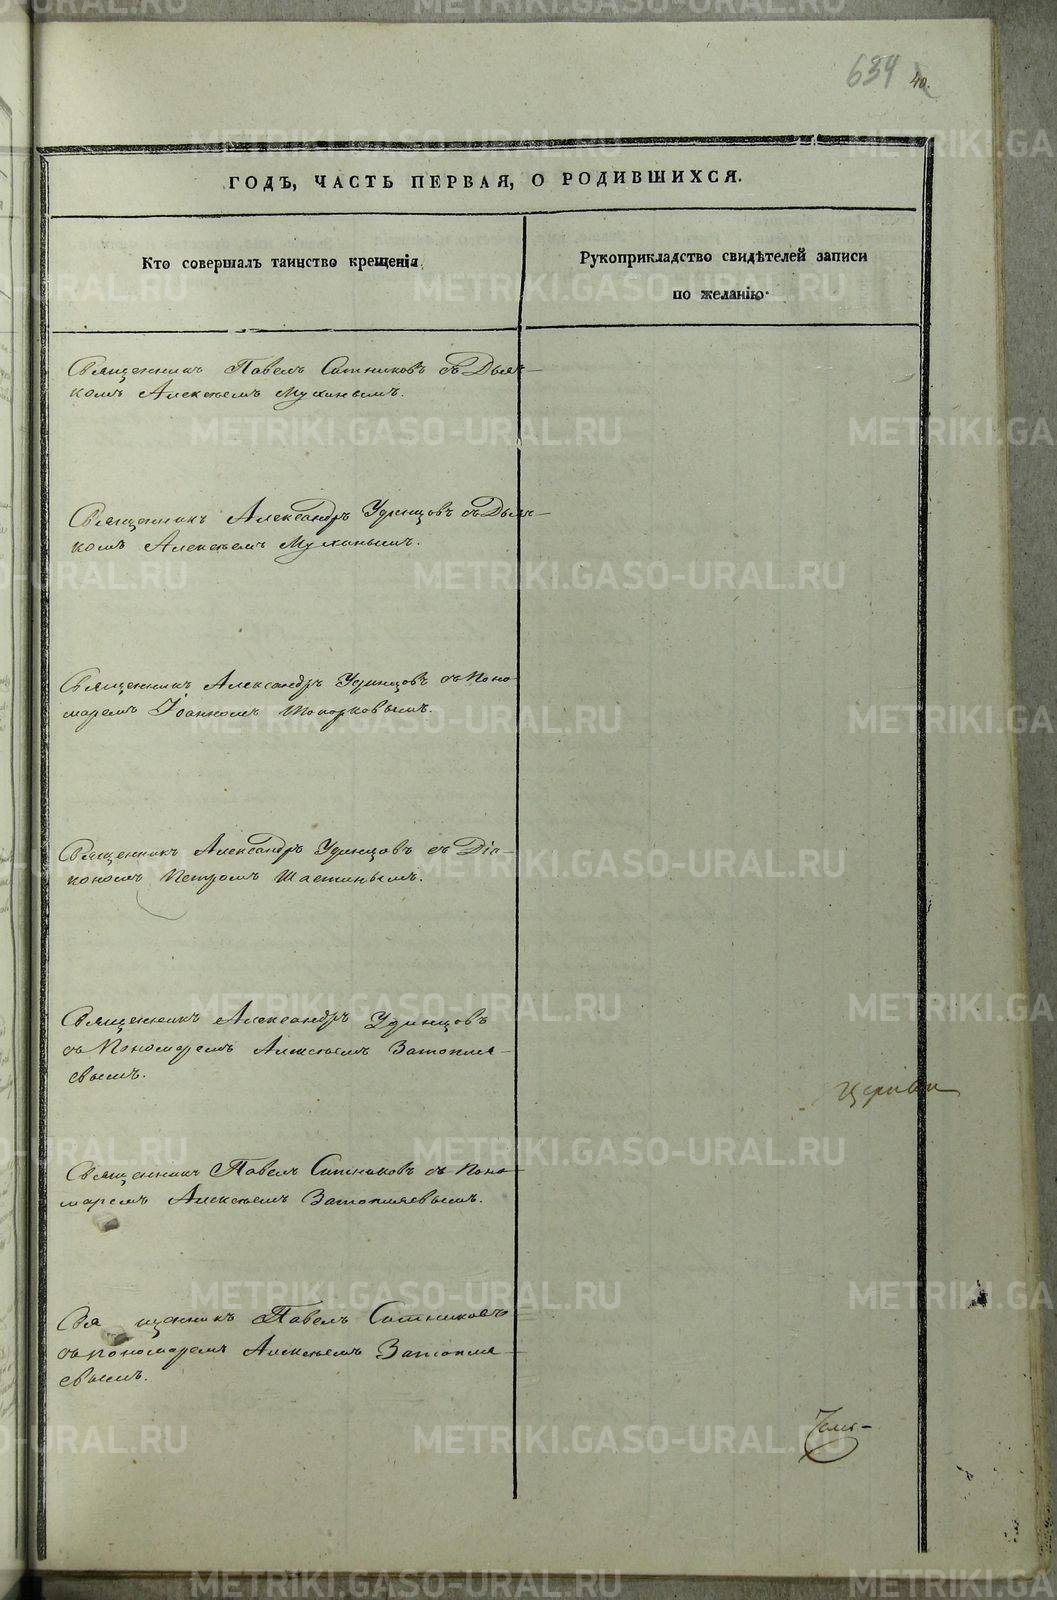 634 40.
ГОДЪ, ЧАСТЬ ПЕРВАЯ, О РОДИВШИХСЯ.
Кто совершалъ таинство крещенія.
Рукоприкладство свидѣтелей записи
по желанію.
Священникъ Павелъ Ситниковъ съ Дьяч-
комъ Алексѣемъ Мухинымъ.
Священникъ Александръ Удинцовъ съ Дьяч-
комъ Алексѣемъ Мухинымъ.
Священникъ Александръ Удинцовъ съ Поно
маремъ Іоанномъ Топорковымъ.
Священникъ Александръ Удинцовъ съ Діа-
кономъ Петромъ Шастинымъ.
Священникъ Александръ Удинцовъ
съ Пономаремъ Алексѣемъ Затопля-
евымъ.
Церкви
Священникъ Павелъ Ситниковъ съ Поно-
маремъ Алексѣемъ Затопляевымъ.
Священникъ Павелъ Ситниковъ
съ пономаремъ Алексѣемъ Затопля-
евымъ.
METRIKI.GASO-URAL.RU